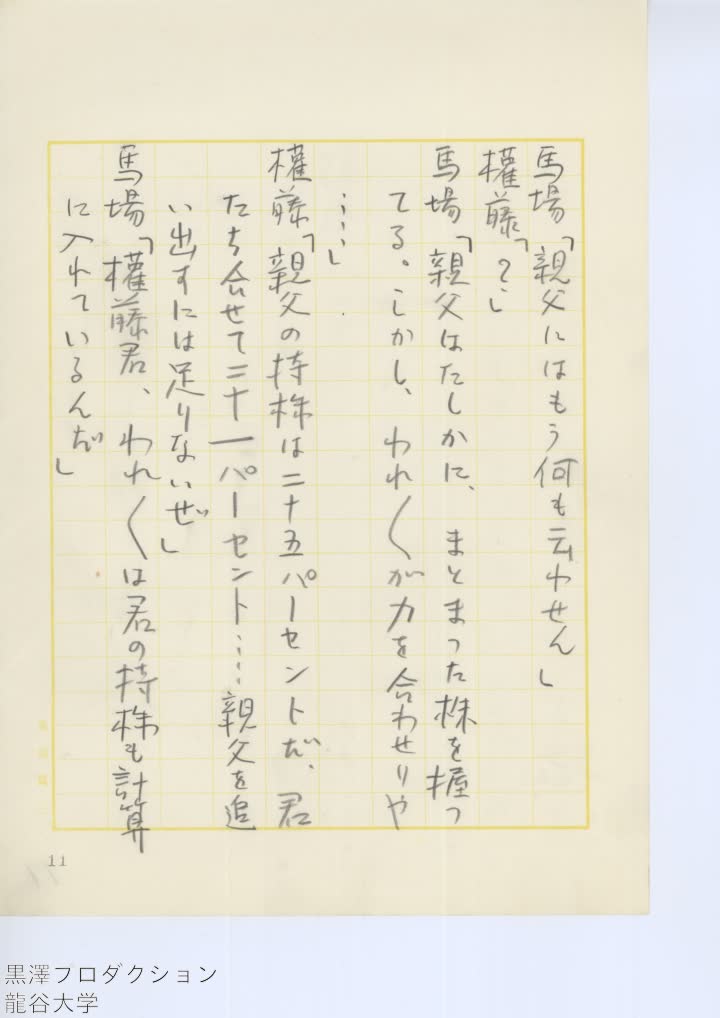 馬場「親父にはもう何も云わせん」
權藤「?」
馬場「親父はたしかに、まとまった株を握っ
てる。しかし、われ〱が力を合わせりや
……」
權藤「親父の持株は二十五パーセントだ、君
たち合せて二十一パーセント……親父を追
い出すには足りないぜ」
馬場「權藤君、われ〱は君の持株も計算
に入れているんだ」
11
黒澤プロダクション
龍谷大学